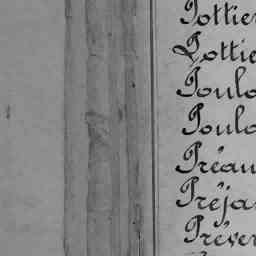 Pottier
Pottie
Poula
Poula
Préau
Préja
Préver